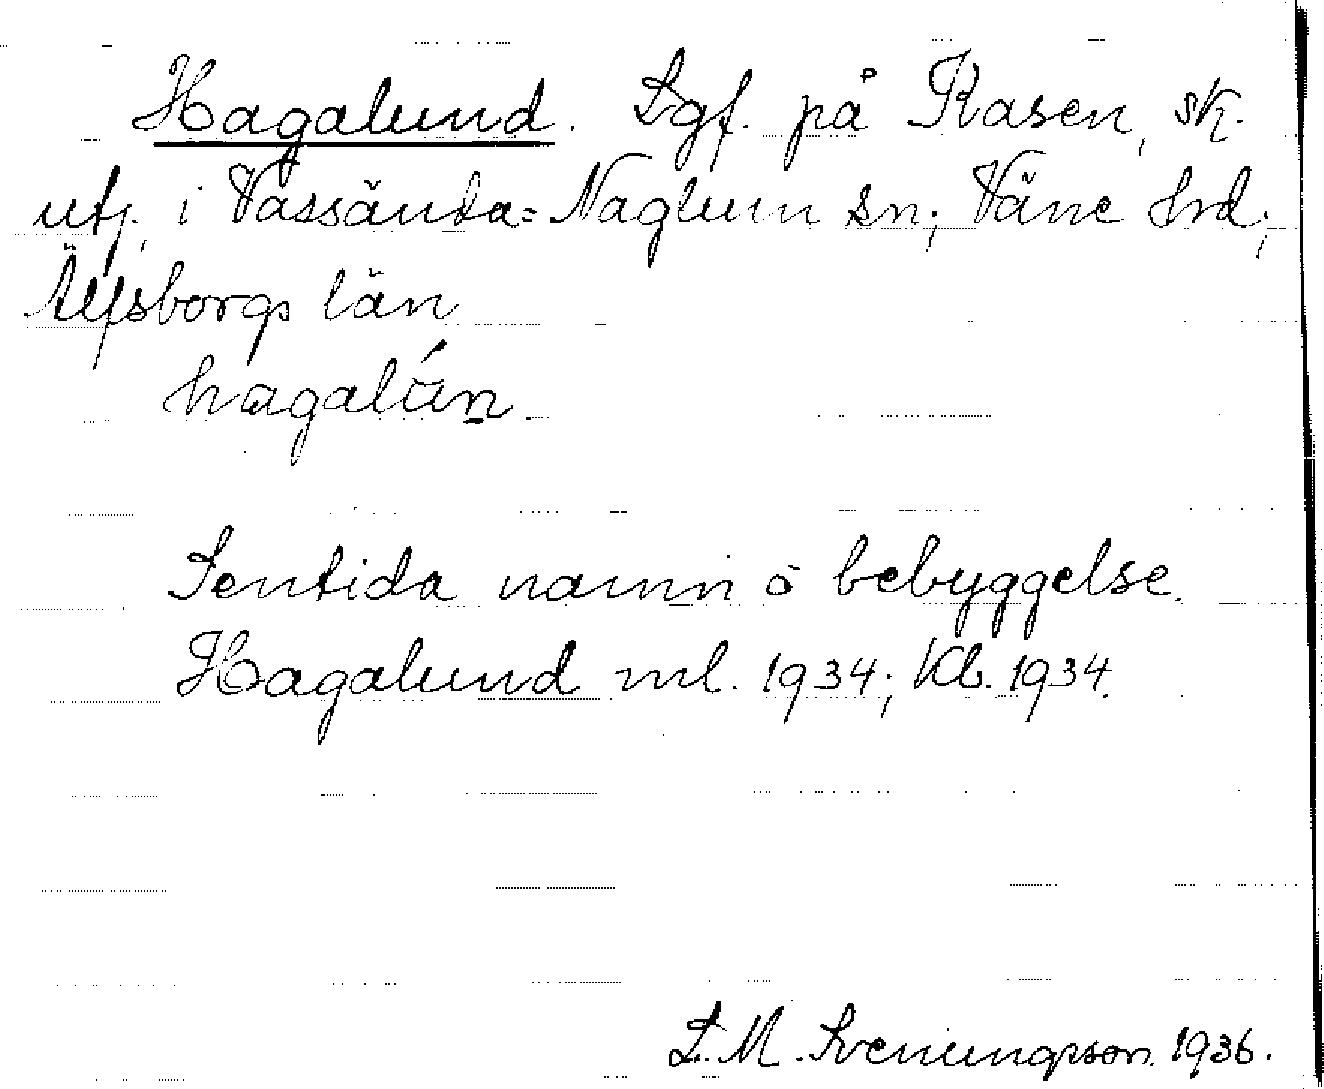 Hagalund. Lgf. på Rasen, sk.
utj. i Vassända=Naglum sn; Väne hd;
Älfsborgs län
hagalún
Sentida namn o bebyggelse.
Hagalund ml. 1934; Kb. 1934.
L. M. Svenungsson. 1936.